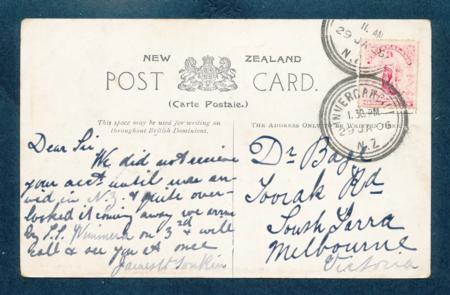 NEW ZEALAND
POST CARD.
(Carte Postale.)
This space may be used for writing on
throughout British Dominions.
THE ADDRESS ONLY TO BE WRITTEN HERE
11. AM
29 JA 06
N.Z
INVERCARGILL
1.30 PM
29 JA 06
N.Z
Dear Sir
We did not receive
your acct until we arr
ived in N.Z. & quite over-
looked it coming away we arrive
by S.S. Wimmera on 3rd & will
call & see you at once
James W Tonkin
Dr Bage
Toorak Rd
South Yarra
Melbourne
Victoria